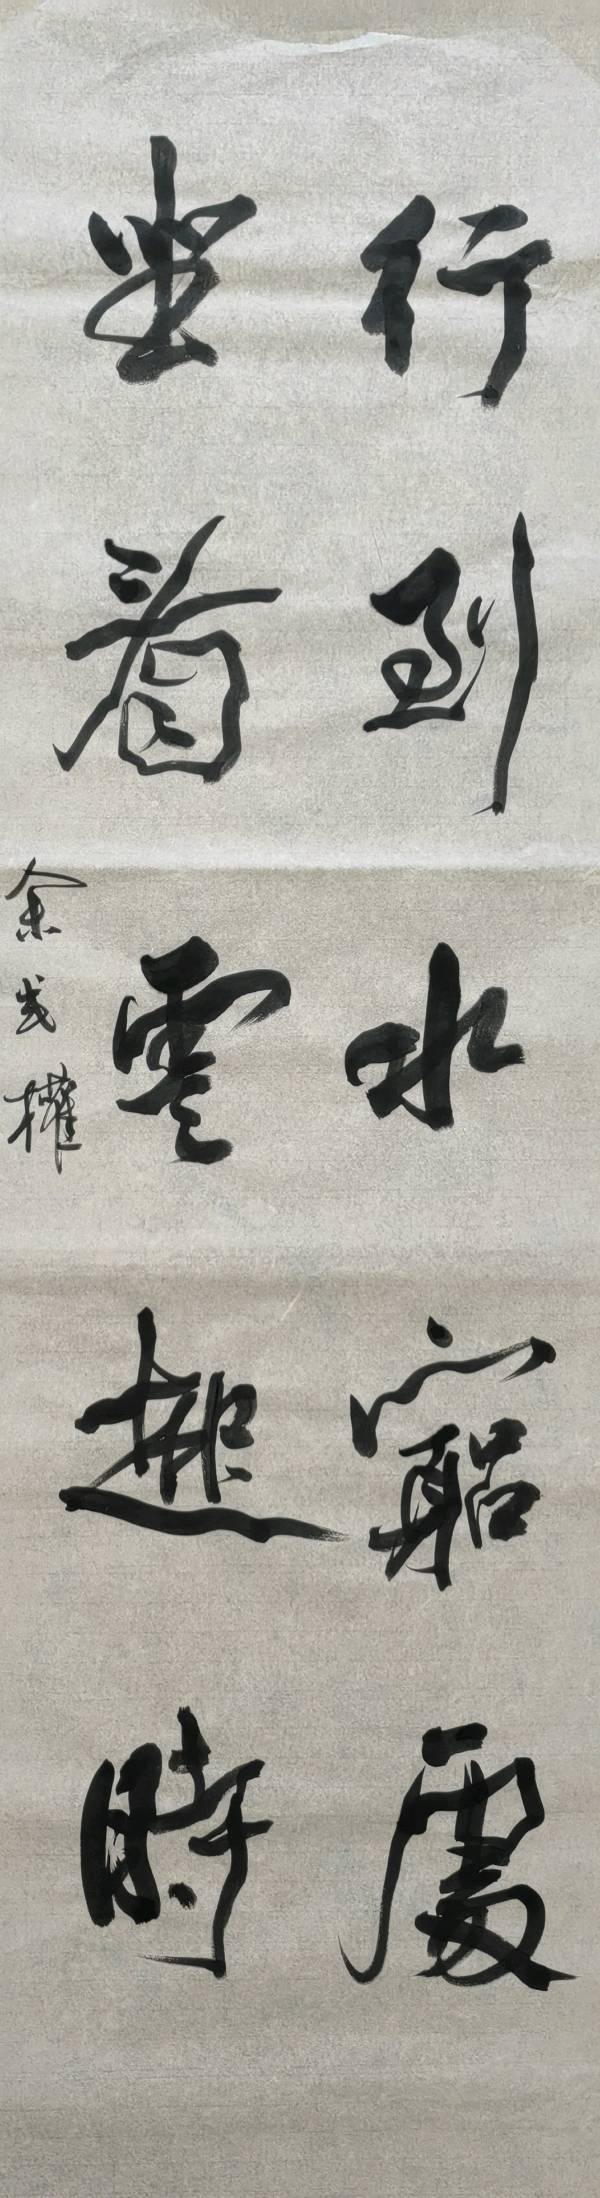 行到水窮處
坐看雲起時
余成權